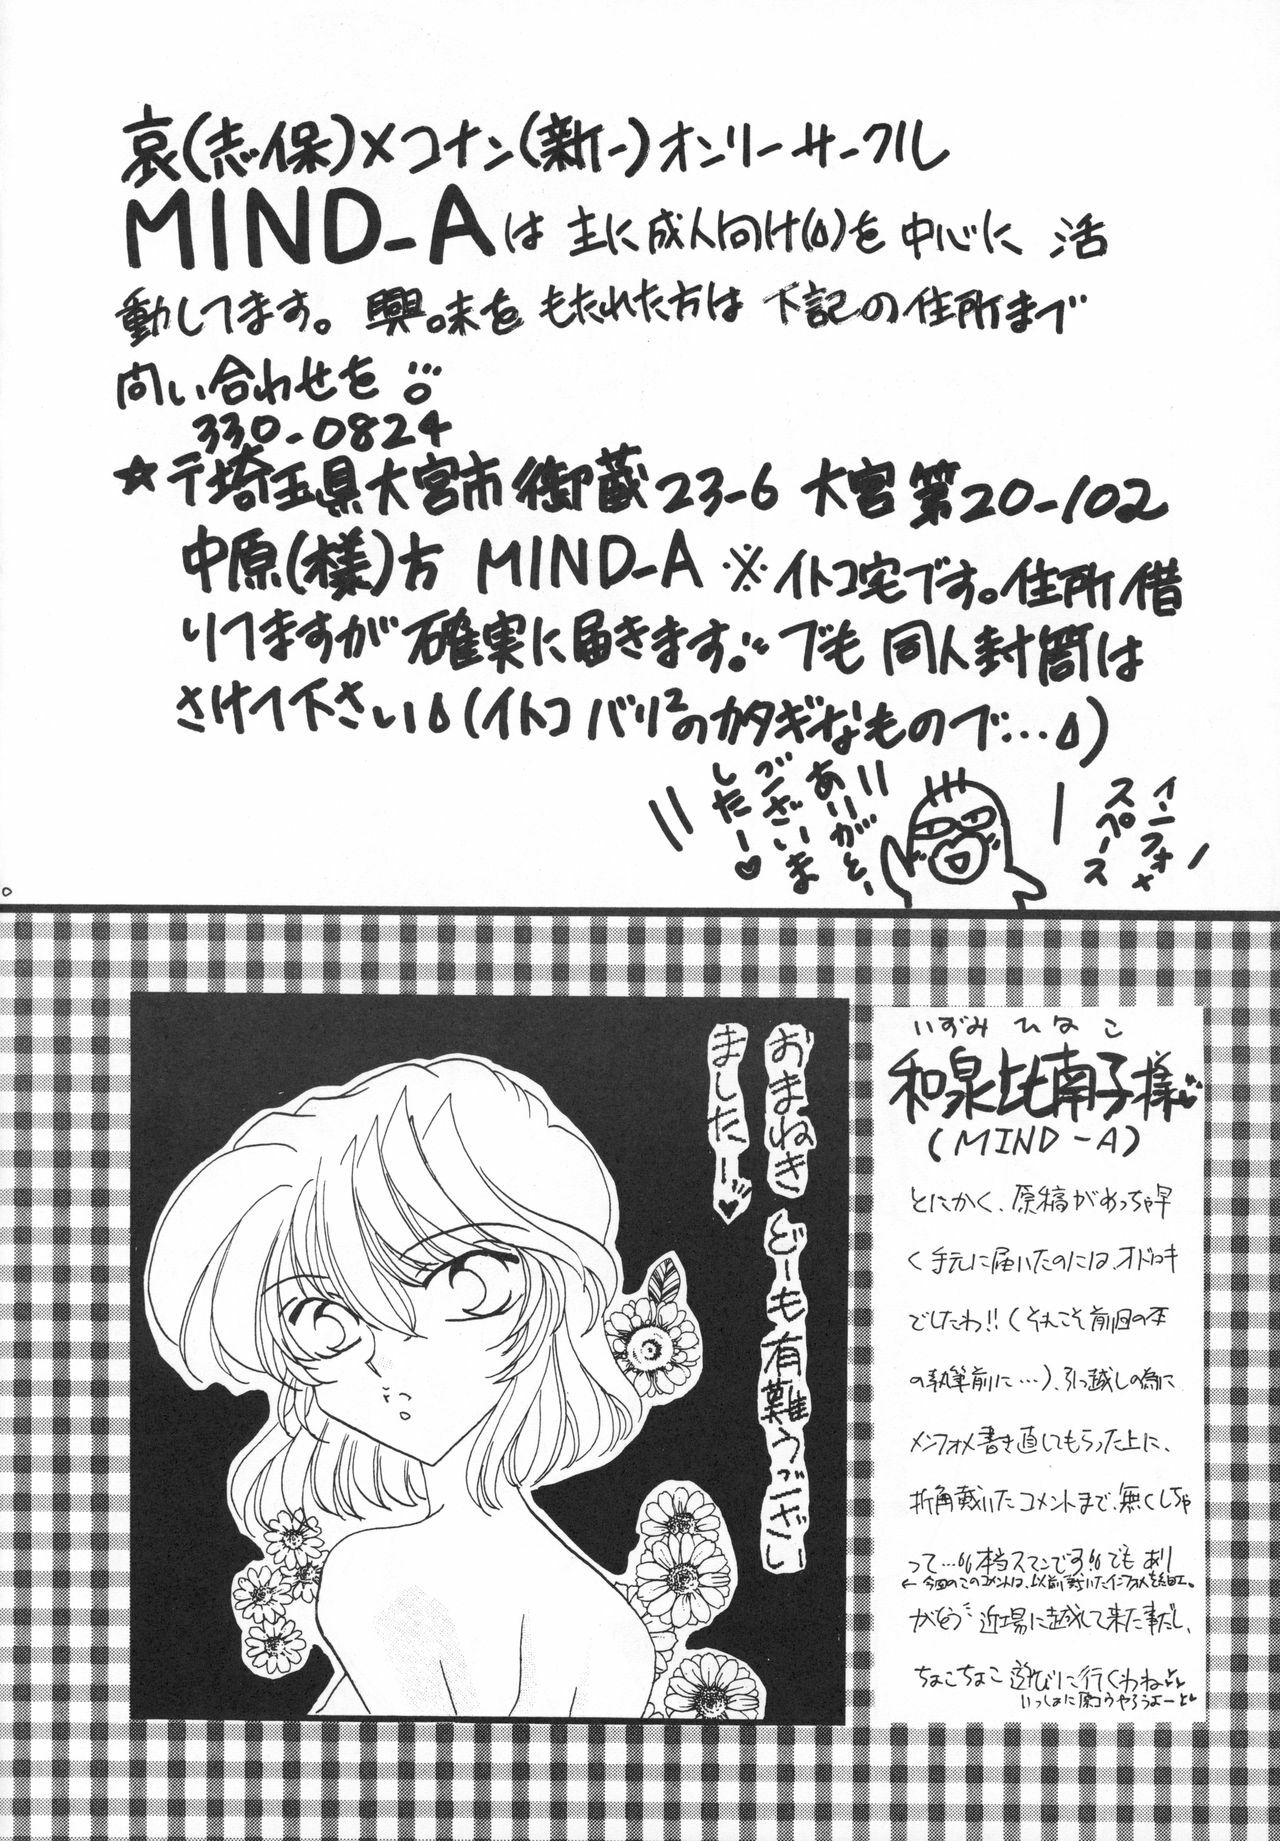 哀(志保)×コナン(新一)オンリーサークル
MIND-Aは 主に成人向け(💧)を 中心に 活
動してます。興味を もたれた方は 下記の住所まで
問い合わせを
330-0824
☆〒埼玉県大宮市御蔵23-6 大宮第20-102
中原(様)方 MIND-A ※イトコ宅です。住所借
りてますが確実に届きます。でも同人封筒は
さけて下さい(イトコバリ²のカタギなもので…)
インフォメ
スペース
ありがとう
ございま
したー♥
おまねき どーも有難うござい
ましたー♥
いずみ ひなこ
和泉比南子様
(MIND-A)
とにかく、原稿がめっちゃ早
く手元に届いたのには、オドロキ
でしたわ!!(それこそ前回の本
の執筆前に…)、引っ越しの為に
インフォメ書き直してもらった上に、
折角戴いたコメントまで、無くしちゃ
って…本当スマンです でも あり
←今回のこのコメントは、以前戴いたインフォメを
がとう 近場に越して来た事だし、
ちょこちょこ 遊びに行くわね
いっしょに原コウやろうよー